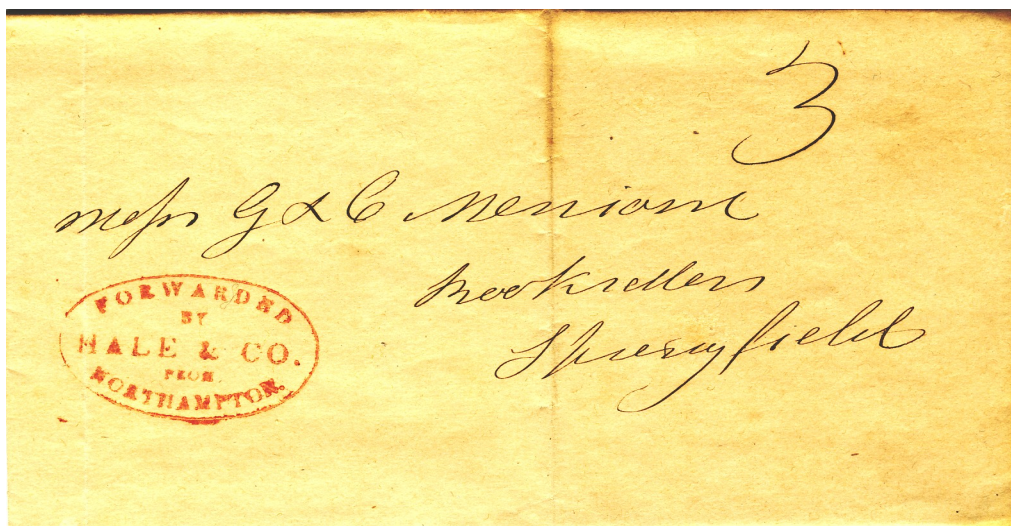 3
Messrs G & C Merriam
Booksellers
Springfield
FORWARDED
BY
HALE & CO.
FROM
NORTHAMPTON.